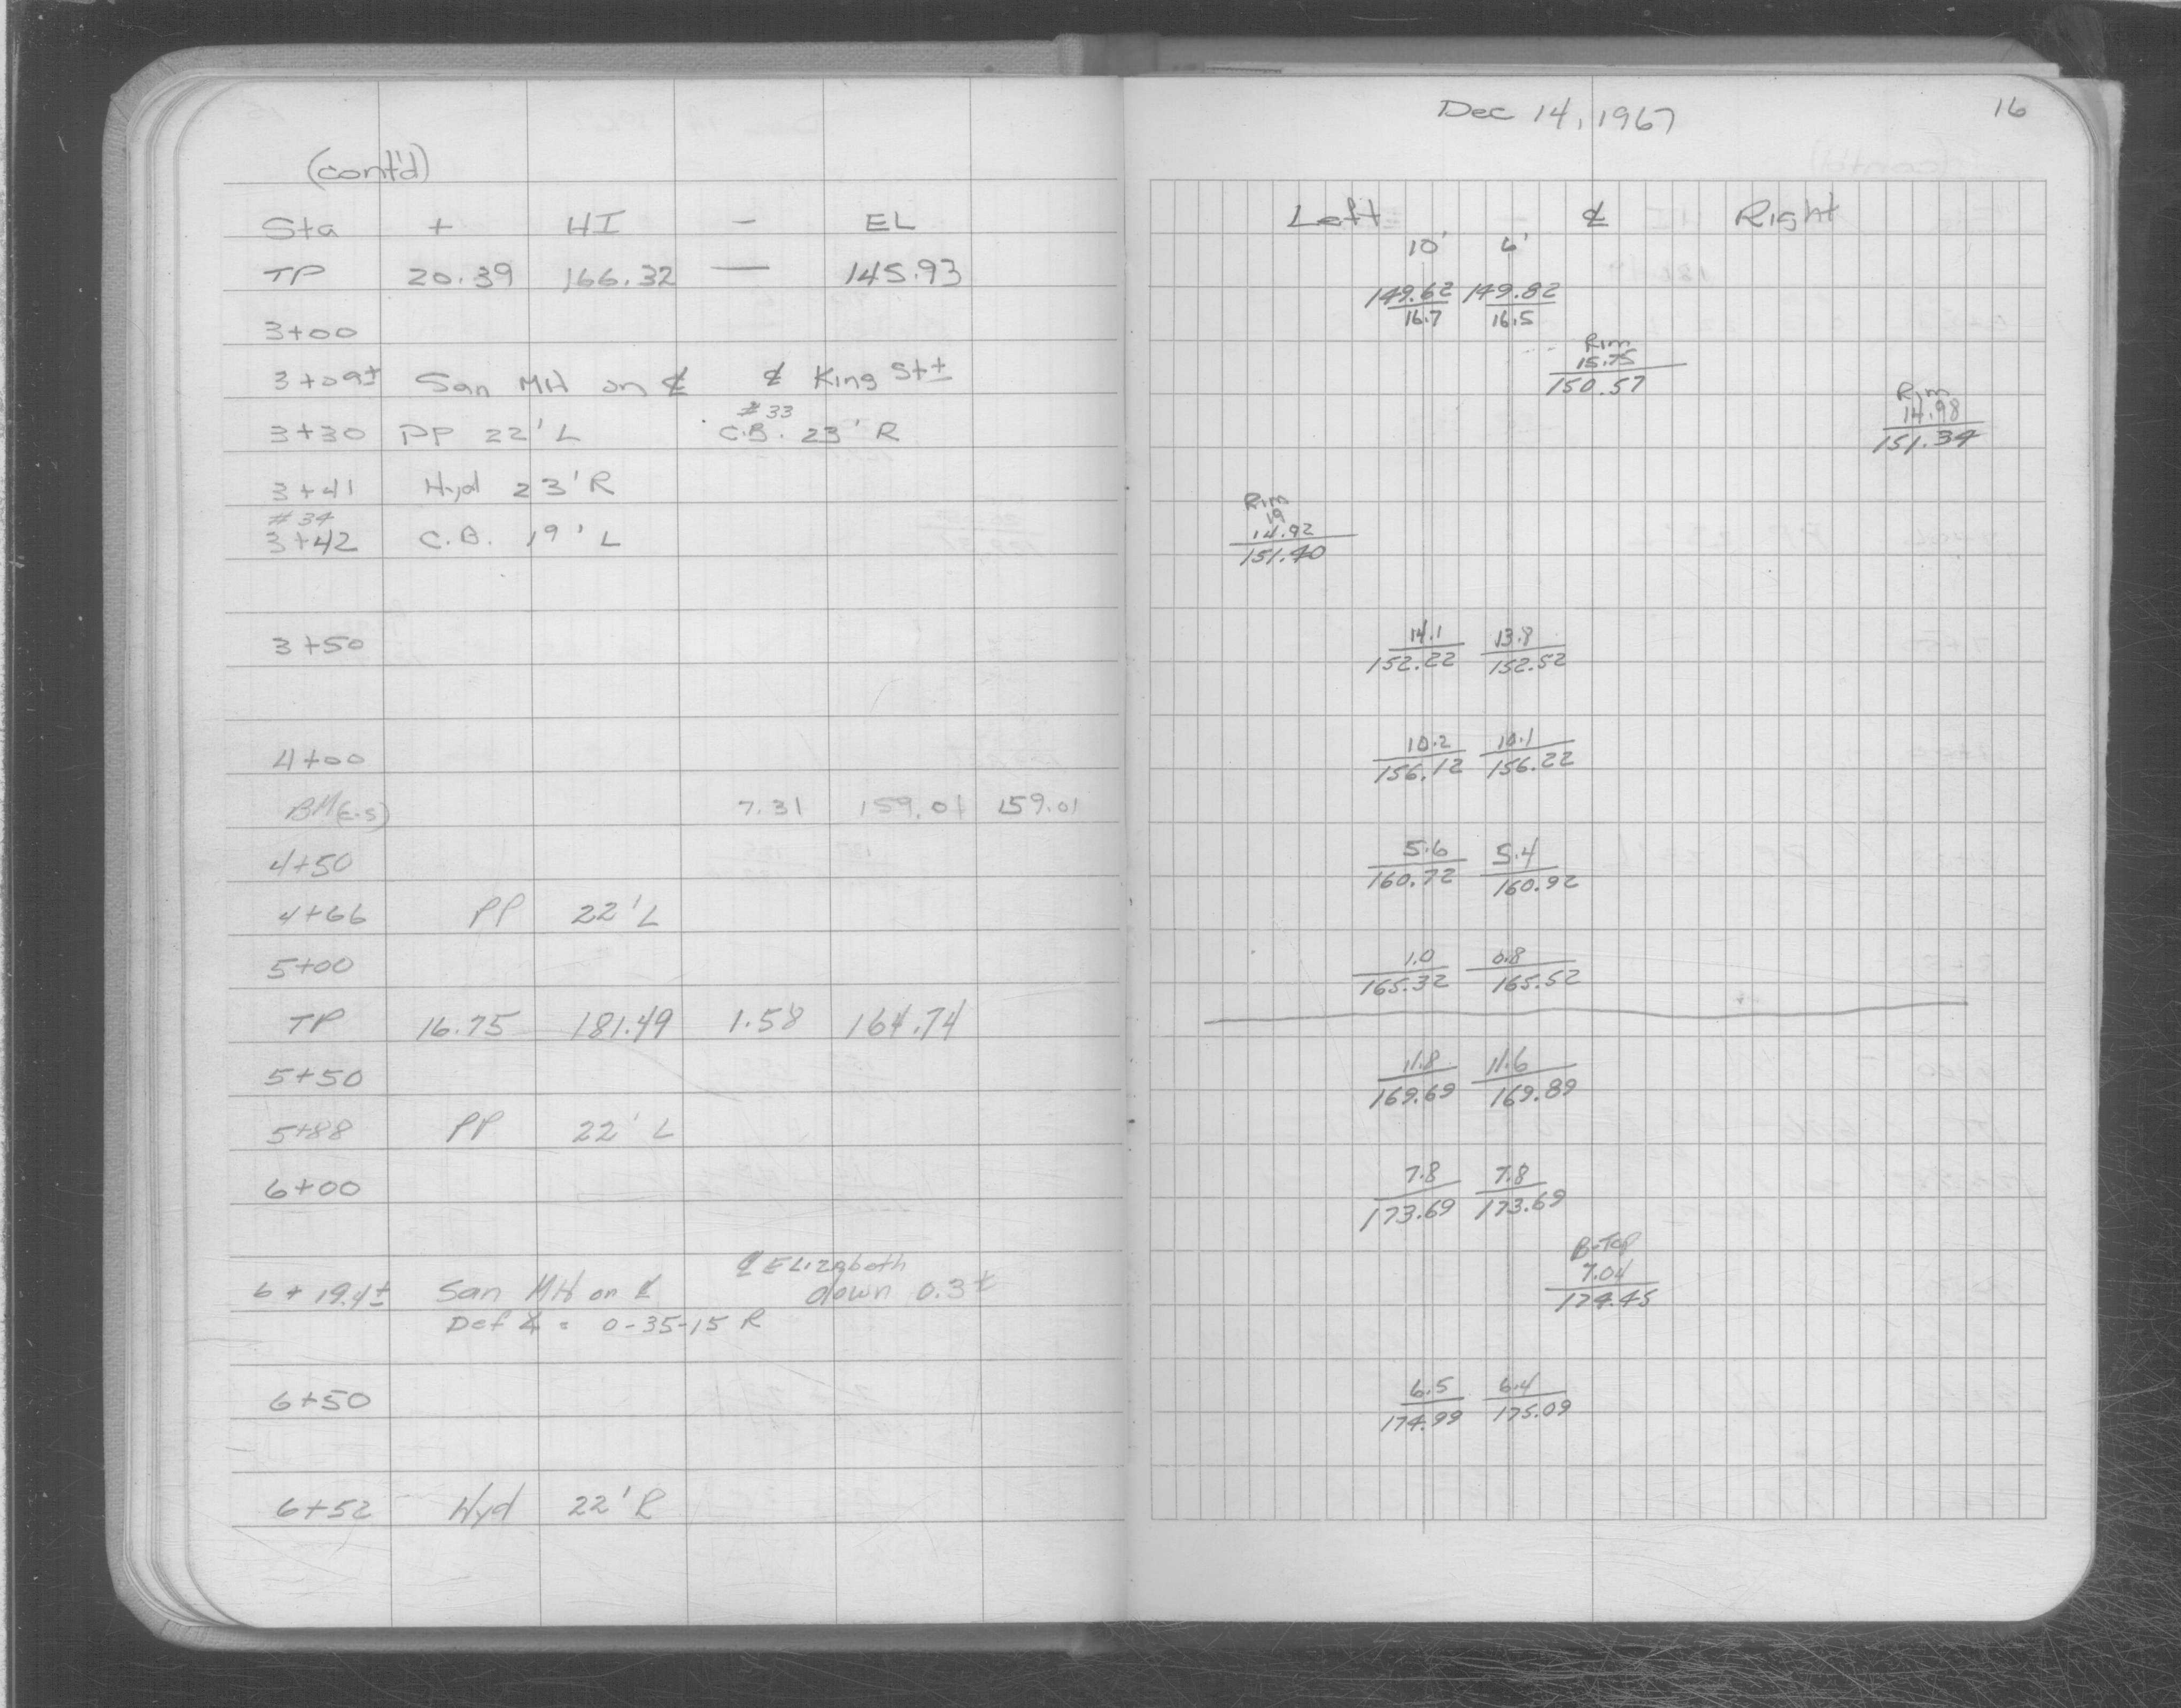 (cont'd)
Sta + HI — EL
TP 20.39 166.32 — 145.93
3+00
3+09± San MH on ℄ ℄ King St±
#33
3+30 PP 22' L C.B. 23' R
3+41 Hyd 23' R
#34
3+42 C.B. 19' L
3+50
4+00
BM(E-S) 7.31 159.01 159.01
4+50
4+66 PP 22' L
5+00
TP 16.75 181.49 1.58 164.74
5+50
5+88 PP 22' L
6+00
℄ Elizabeth
6+19.4± San MH on ℄ down 0.3±
Def ∡ = 0-35-15 R
6+50
6+52 Hyd 22' R
Dec 14, 1967 16
Left ℄ Right
10' 6'
149.62 149.82
16.7 16.5
Rim
15.75
150.57
Rim
14.98
151.34
Rim
19
14.92
151.40
14.1 13.8
152.22 152.52
10.2 10.1
156.12 156.22
5.6 5.4
160.72 160.92
1.0 0.8
165.32 165.52
11.8 11.6
169.69 169.89
7.8 7.8
173.69 173.69
B-Top
7.04
174.45
6.5 6.4
174.99 175.09